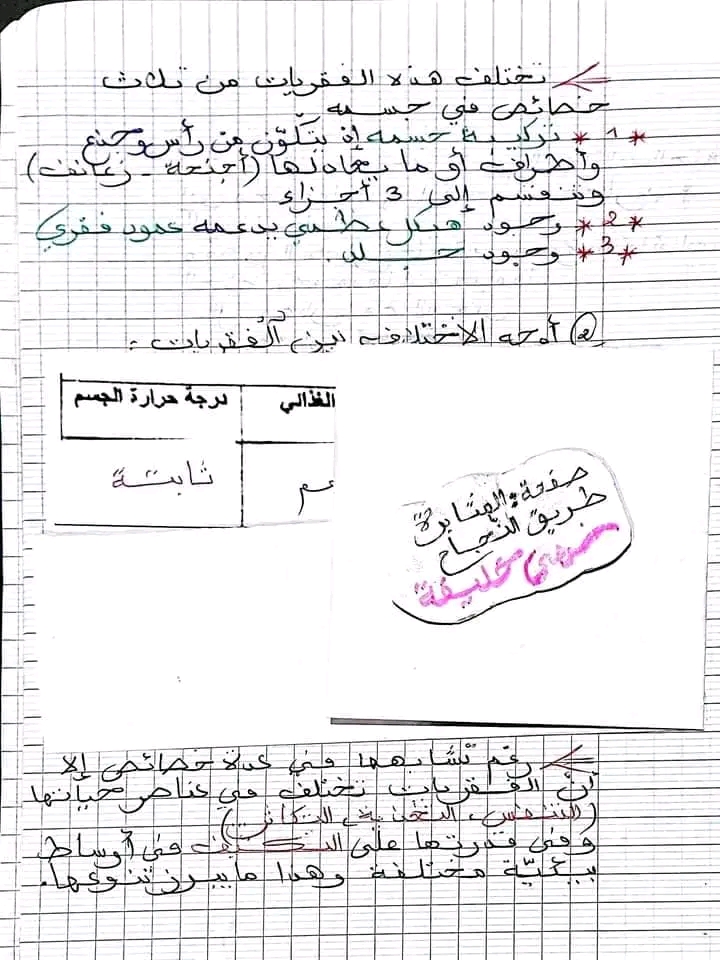 تختلف هذه الفقريات من ثلاث
خصائص في جسمه
*1* تركيبة جسمه إذ يتكوّن من رأس وجذع
وأطراف أو ما يعادلها (أجنحة - زعانف)
وتنقسم إلى 3 أجزاء
*2* وجود هيكل عظمي يدعمه عمود فقري
*3* وجود جلد.
② أوجه الاختلاف بين الفقريات:
الغذائي درجة حرارة الجسم
ثابتة
صفحة: المثابرة
طريق النجاح
خليفة
رغم تشابهها في عدة خصائص إلا
أنّ الفقريات تختلف في عناصر حياتها
(التنفس، التغذية، التكاثر)
وفي قدرتها على التكيّف في أوساط
بيئيّة مختلفة وهذا ما يبرز تنوعها.